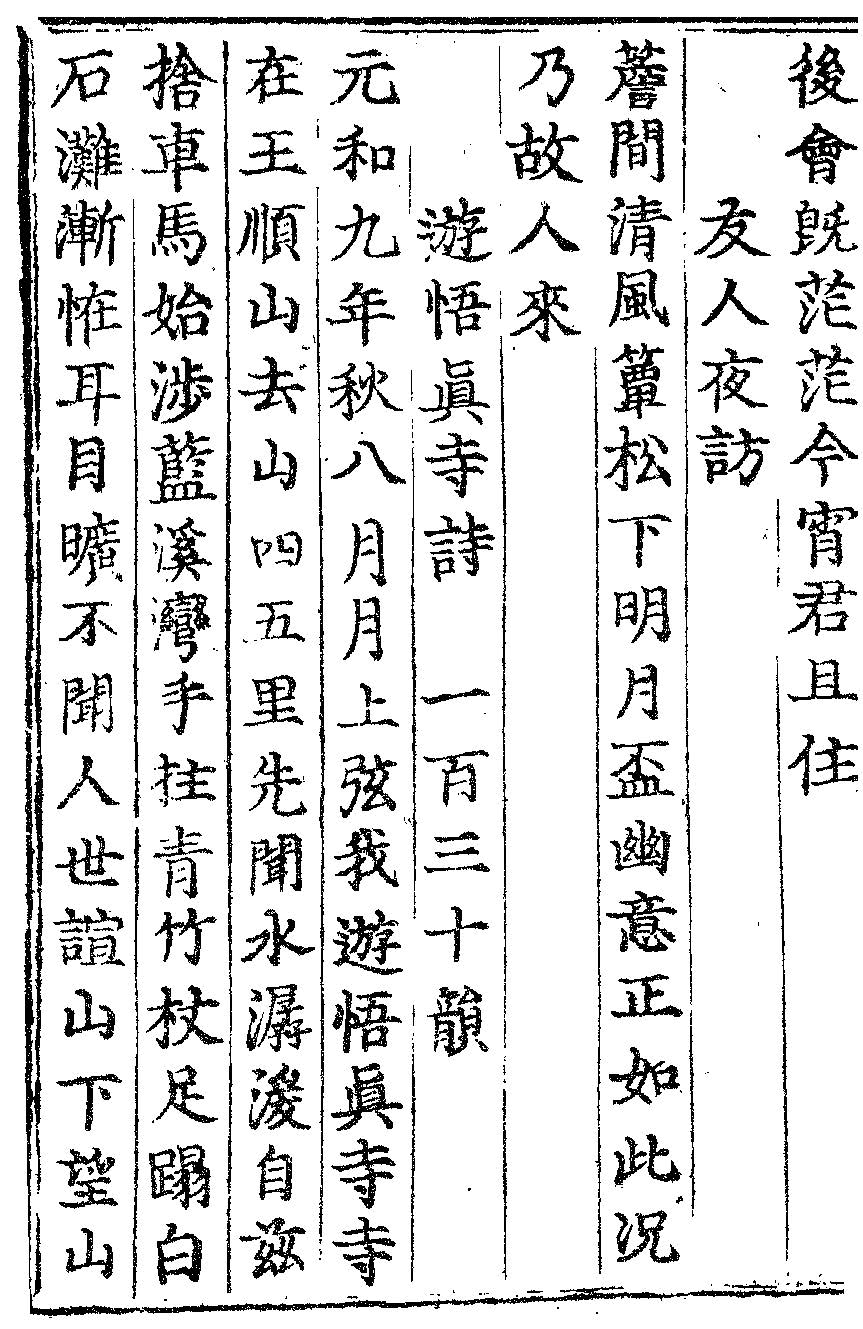 後會旣茫茫今宵君且住
友人夜訪
薝間清風簟松下明月盃幽意正如此况
乃故人來
遊悟眞寺詩　一百三十韻
元和九年秋八月月上弦我遊悟眞寺寺
在王順山去山四五里先聞水潺湲自兹
捨車馬始涉藍溪灣手拄青竹杖足蹋白
石灘漸恠耳目曠不聞人世諠山下望山